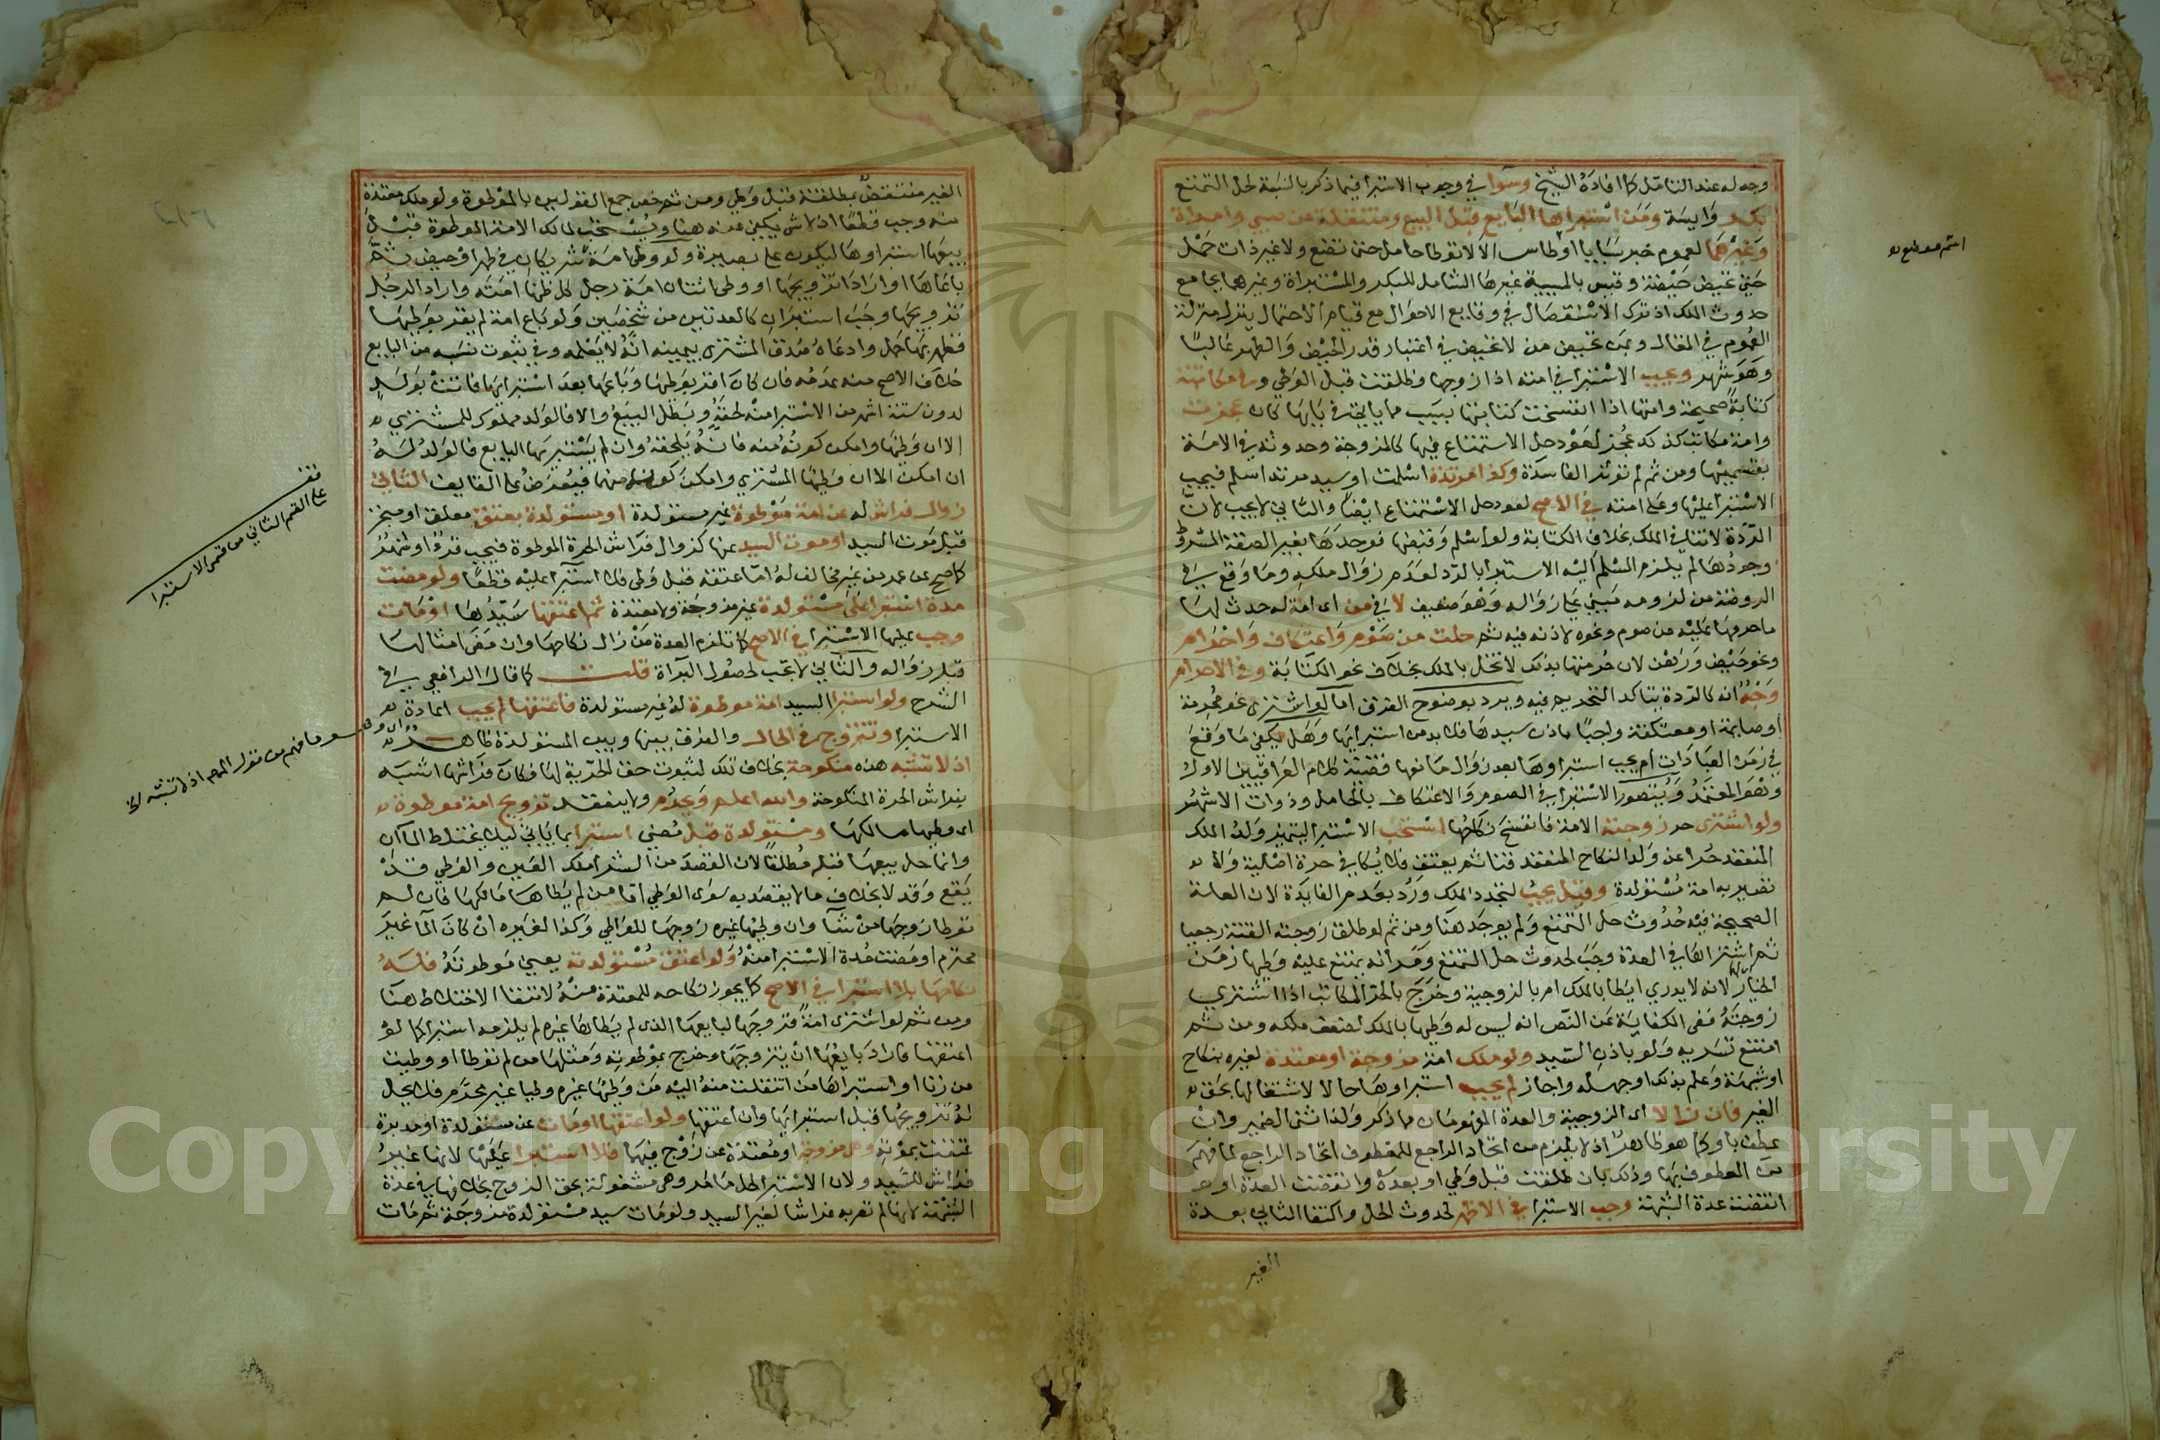 وجه له عند التامل كما افاده الشيخ وسوا في وجوب الاستبرا فيما ذكر بالنسبة لحل التمتع
بكر وايسة ومن استبراها البايع قبل البيع ومنتقلة من صبي وامراة
وغيرهما لعموم خبر سبايا اوطاس الا لا توطا حامل حتى تضع ولا غير ذات حمل
حتى تحيض حيضة وقيس بالمسبية غيرها الشامل للبكر والمستبراة وغيرهما بجامع
حدوث الملك اذ ترك الاستفصال في وقايع الاحوال مع قيام الاحتمال ينزل منزلة
العموم في المقال وبمن تحيض من لا تحيض في اعتبار قدر الحيض والطهر غالبا
وهو شهر ويجب الاستبرا في امته اذا زوجها وطلقت قبل الوطي وفي مكاتبة
كتابة صحيحة وامتها اذا انفسخت كتابتها بسبب مما ياتي في بابها كان عجزت
وامة مكاتب كذلك عجز لعود حل الاستمتاع فيها كالمزوجة وحدوثه في الامة
بقسميها ومن ثم لم توثر الفاسدة وكذا مرتدة اسلمت او سيد مرتد اسلم فيجب
الاستبرا عليها وعلى امته في الاصح لعود حل الاستمتاع ايضا والثاني لا يجب لان
الردة لا تنافي الملك بخلاف الكتابة ولو اسلم وقبضها فوجدها بغير الصفة المشروط
وجودها لم يلزم المسلم اليه الاستبرا بالرد لعدم زوال ملكه وما وقع في
الروضة من لزومه مبني على زواله وهو ضعيف لا في من اى امة له حدث لها
ما حرمها عليه من صوم ونحوه لاذنه فيه ثم حلت من صوم واعتكاف واحرام
ونحو حيض ورهن لان حرمتها بذلك لا تخل بالملك بخلاف نحو الكتابة وفي الاحرام
وجه انه كالردة بتاكد التحريم فيه ويرد بوضوح الفرق اما لو اشترى نحو محرمة
او صايمة او معتكفة واجبا باذن سيدها فلا بد من استبرايها وهل يكفي ما وقع
في زمن العبادات ام يجب استبراوها بعد زوال مانعها قضية كلام العراقيين الاول
وهو المعتمد ويتصور الاستبرا في الصوم والاعتكاف بالحامل وذوات الاشهر
ولو اشترى حر زوجته الامة فانفسخ نكاحها استحب الاستبرا ليتميز ولد الملك
المنعقد حرا عن ولد النكاح المنعقد قنا ثم يعتق فلا يكافي حرة اصلية ولا
تصير به امة مستولدة وقيل يجب لتجدد الملك ورد بعدم الفايدة لان العلة
الصحيحة فيه حدوث حل التمتع ولم يوجد هنا ومن ثم لو طلق زوجته القنة رجعيا
ثم اشتراها في العدة وجب لحدوث حل التمتع ومر انه يمتنع عليه وطيها زمن
الخيار لانه لا يدري ايطا بالملك ام بالزوجية وخرج بالحر المكاتب اذا اشترى
زوجته ففي الكفاية عن النص انه ليس له وطيها بالملك لضعف ملكه ومن ثم
امتنع تسريه ولو باذن السيد ولو ملك امة مزوجة او معتدة لغيره بنكاح
او شبهة وعلم بذلك او جهله واجاز لم يجب استبراوها حالا لاشتغالها بحق
الغير فان زالا اى الزوجية والعدة المفهومان مما ذكر ولذا ثنى الضمير وان
عطف باو كما هو ظاهر اذ لا يلزم من اتحاد الراجع للمعطوف اتحاد الراجع لما فهم
من المعطوف بها وذلك بان طلقت قبل وطي او بعده وانقضت العدة او
انقضت عدة الشبهة وجب الاستبرا في الاظهر لحدوث الحل واكتفا الثاني بعدة
الغير
الغير منتقض بمطلقة قبل وطي ومن ثم خص جمع القولين بالموطوة ولو ملك معتدة
منه وجب قطعا اذ لا شي يكفي عنه هنا ويستحب لمالك الامة الموطوة قبل
بيعها استبراوها ليكون على بصيرة ولو وطي امة شريكان في طهر او حيض ثم
باعاها او ارادا تزويجها او وطي اثنان امة رجل كل ظنها امته واراد الرجل
تزويجها وجب استبران كالعدتين من شخصين ولو باع امة لم يقر بوطيها
فظهر بها حمل وادعاه صدق المشتري بيمينه انه لا يعلمه وفي ثبوت نسبه من البايع
خلاف الاصح منه عدمه فان كان اقر بوطيها وباعها بعد استبرايها فاتت بولد
لدون ستة اشهر من الاستبرا منه لحقه وبطل البيع والا فالولد مملوك للمشتري
الا ان وطيها وامكن كونه منه فانه يلحقه وان لم يستبريها البايع فالولد له
ان امكن الا ان وطيها المشتري وامكن كونه منهما فيعرض على القايف الثاني
زوال فراش له عن امة موطوة غير مستولدة او مستولدة بعتق معلق او منجز
قبل موت السيد او موت السيد عنها كزوال فراش الحرة الموطوة فيجب قرؤ او شهر
كما صح عن عمر من غير مخالف له اما عتقه قبل وطى فلا استبرا عليه قطعا ولو مضت
مدة استبرا على مستولدة غير مزوجة ولا معتدة ثم اعتقها سيدها او مات
وجب عليها الاستبرا في الاصح كما تلزم العدة من زال نكاحها وان مضى امثالها
قبل زواله والثاني لا يجب لحصول البراة قلت كما قال الرافعي في
الشرح ولو استبرا السيد امة موطوة له غير مستولدة فاعتقها لم يجب اعادة
الاستبرا وتتزوج في الحال والفرق بينها وبين المستولدة ظاهر
اذ لا تشبه هذه منكوحة بخلاف تلك لثبوت حق الحرية لها فكان فراشها اشبه
بفراش الحرة المنكوحة والله اعلم ويحرم ولا ينعقد تزويج امة موطوة
اى وطيها مالكها ومستولدة قبل مضي استبرا بما ياتي ليلا يختلط الماان
وانما حل بيعها قبله مطلقا لان القصد من الشرا ملك العين والوطي قد
يقع وقد لا بخلاف ما لا يقصد به سوى الوطي اما من لم يطاها مالكها فان لم
توطا زوجها من شا وان وطيها غيره زوجها للواطي وكذا لغيره ان كان الما غير
محترم او مضت مدة الاستبرا منه ولو اعتق مستولدته يعني موطوته فله
نكاحها بلا استبرا في الاصح كما يجوز نكاحه للمعتدة منه لانتفا الاختلاط هنا
ومن ثم لو اشترى امة فزوجها لبايعها الذي لم يطاها غيره لم يلزمه استبرا كما لو
اعتقها فاراد بايعها ان يتزوجها وخرج بموطوته ومثلها من لم توطا او وطيت
من زنا او استبراها من انتقلت منه اليه من وطيها غيره وطيا غير محرم فلا يحل
له تزوجها قبل استبرايها وان اعتقها ولو اعتقها او مات عن مستولدة او مدبرة
عتقت بموته وهي مزوجة او معتدة عن زوج فيهما فلا استبرا عليها لانها غير
فراش للسيد ولان الاستبرا لحل ما مر وهي مشغولة بحق الزوج بخلافها في عدة
الشبهة لانها لم تصر به فراشا لغير السيد ولو مات سيد مستولدة مزوجة ثم مات
قف
على القسم الثاني من قسمي الاستبرا